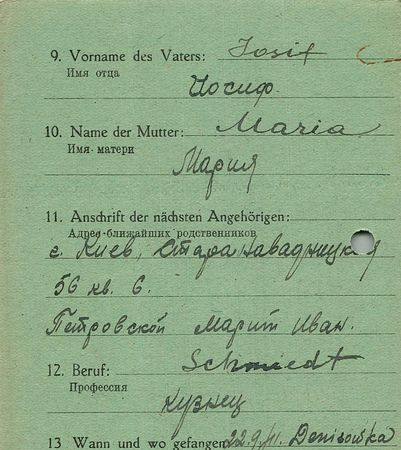 9. Vorname des Vaters: Iosif
Имя отца
Иосиф.
10. Name der Mutter: Maria
Имя матери
Мария
11. Anschrift der nächsten Angehörigen:
Адрес ближайших родственников
г. Киев, Стара
56 кв. 6.
Петровской Марии Иван.
12. Beruf: Schmiedt
Профессия
Кузнец
13 Wann und wo gefangen 22.9.41. Denisowka